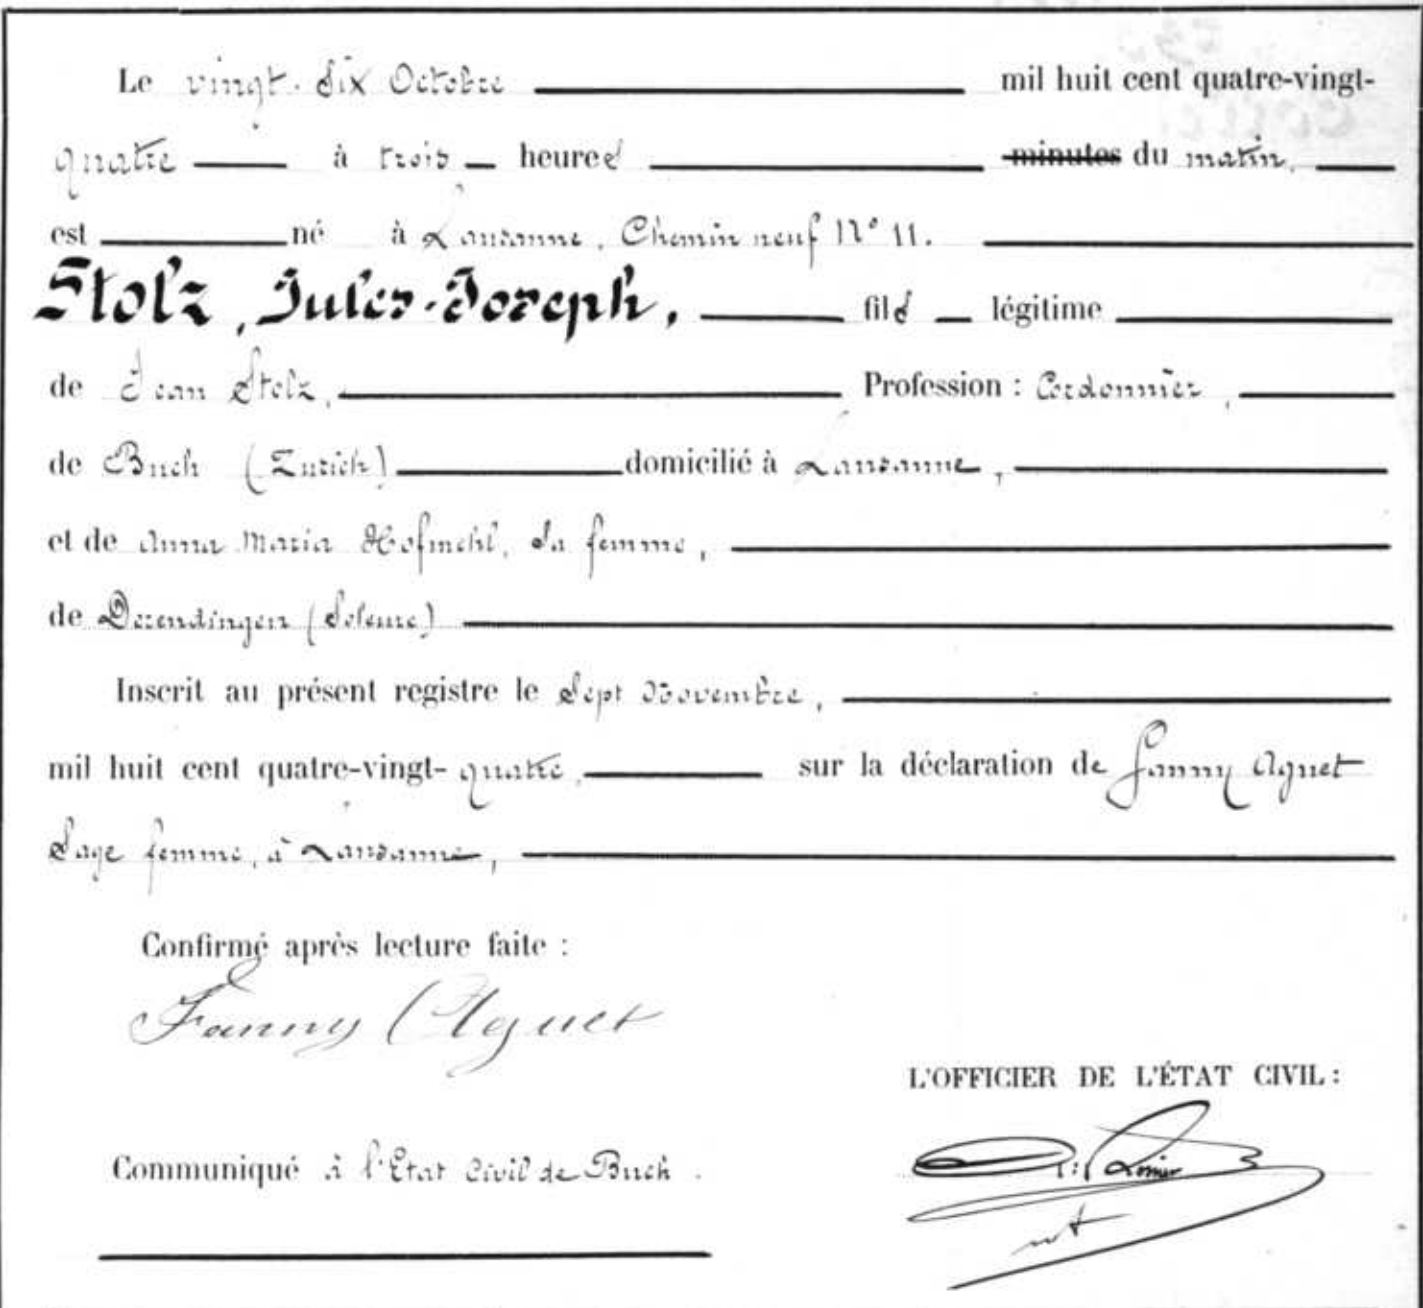 Le vingt-six Octobre mil huit cent quatre-vingt-
quatre à trois heures minutes du matin,
est né à Lausanne, Chemin neuf N° 11.
Stolz, Jules-Joseph, fils légitime
de Jean Stolz, Profession : Cordonnier,
de Buch (Zurich) domicilié à Lausanne,
et de Anna Maria Hofmehl, sa femme,
de Derendingen (Soleure)
Inscrit au présent registre le sept Novembre,
mil huit cent quatre-vingt-quatre, sur la déclaration de Fanny Aguet
Sage femme, à Lausanne,
Confirmé après lecture faite :
Fanny Aguet
L'OFFICIER DE L'ÉTAT CIVIL :
Communiqué à l'Etat Civil de Buch.